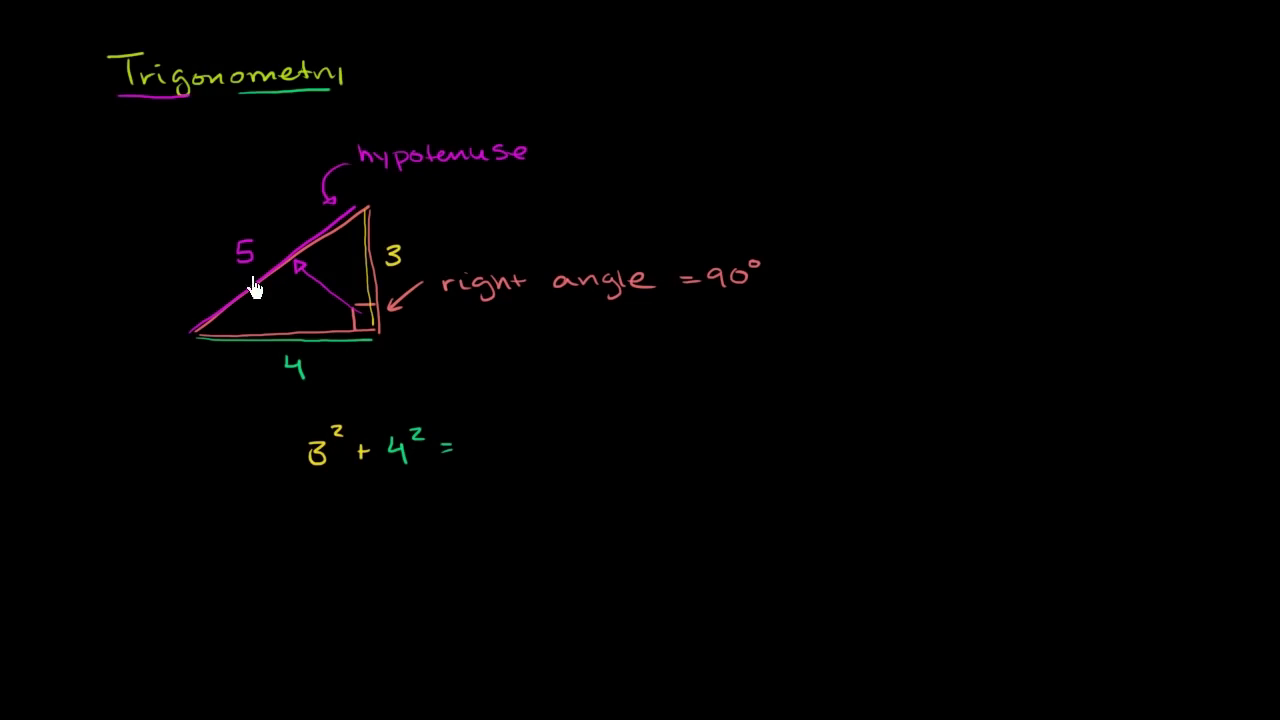 Trigonometry
hypotenuse
5
3
right angle = 90°
4
3² + 4² =